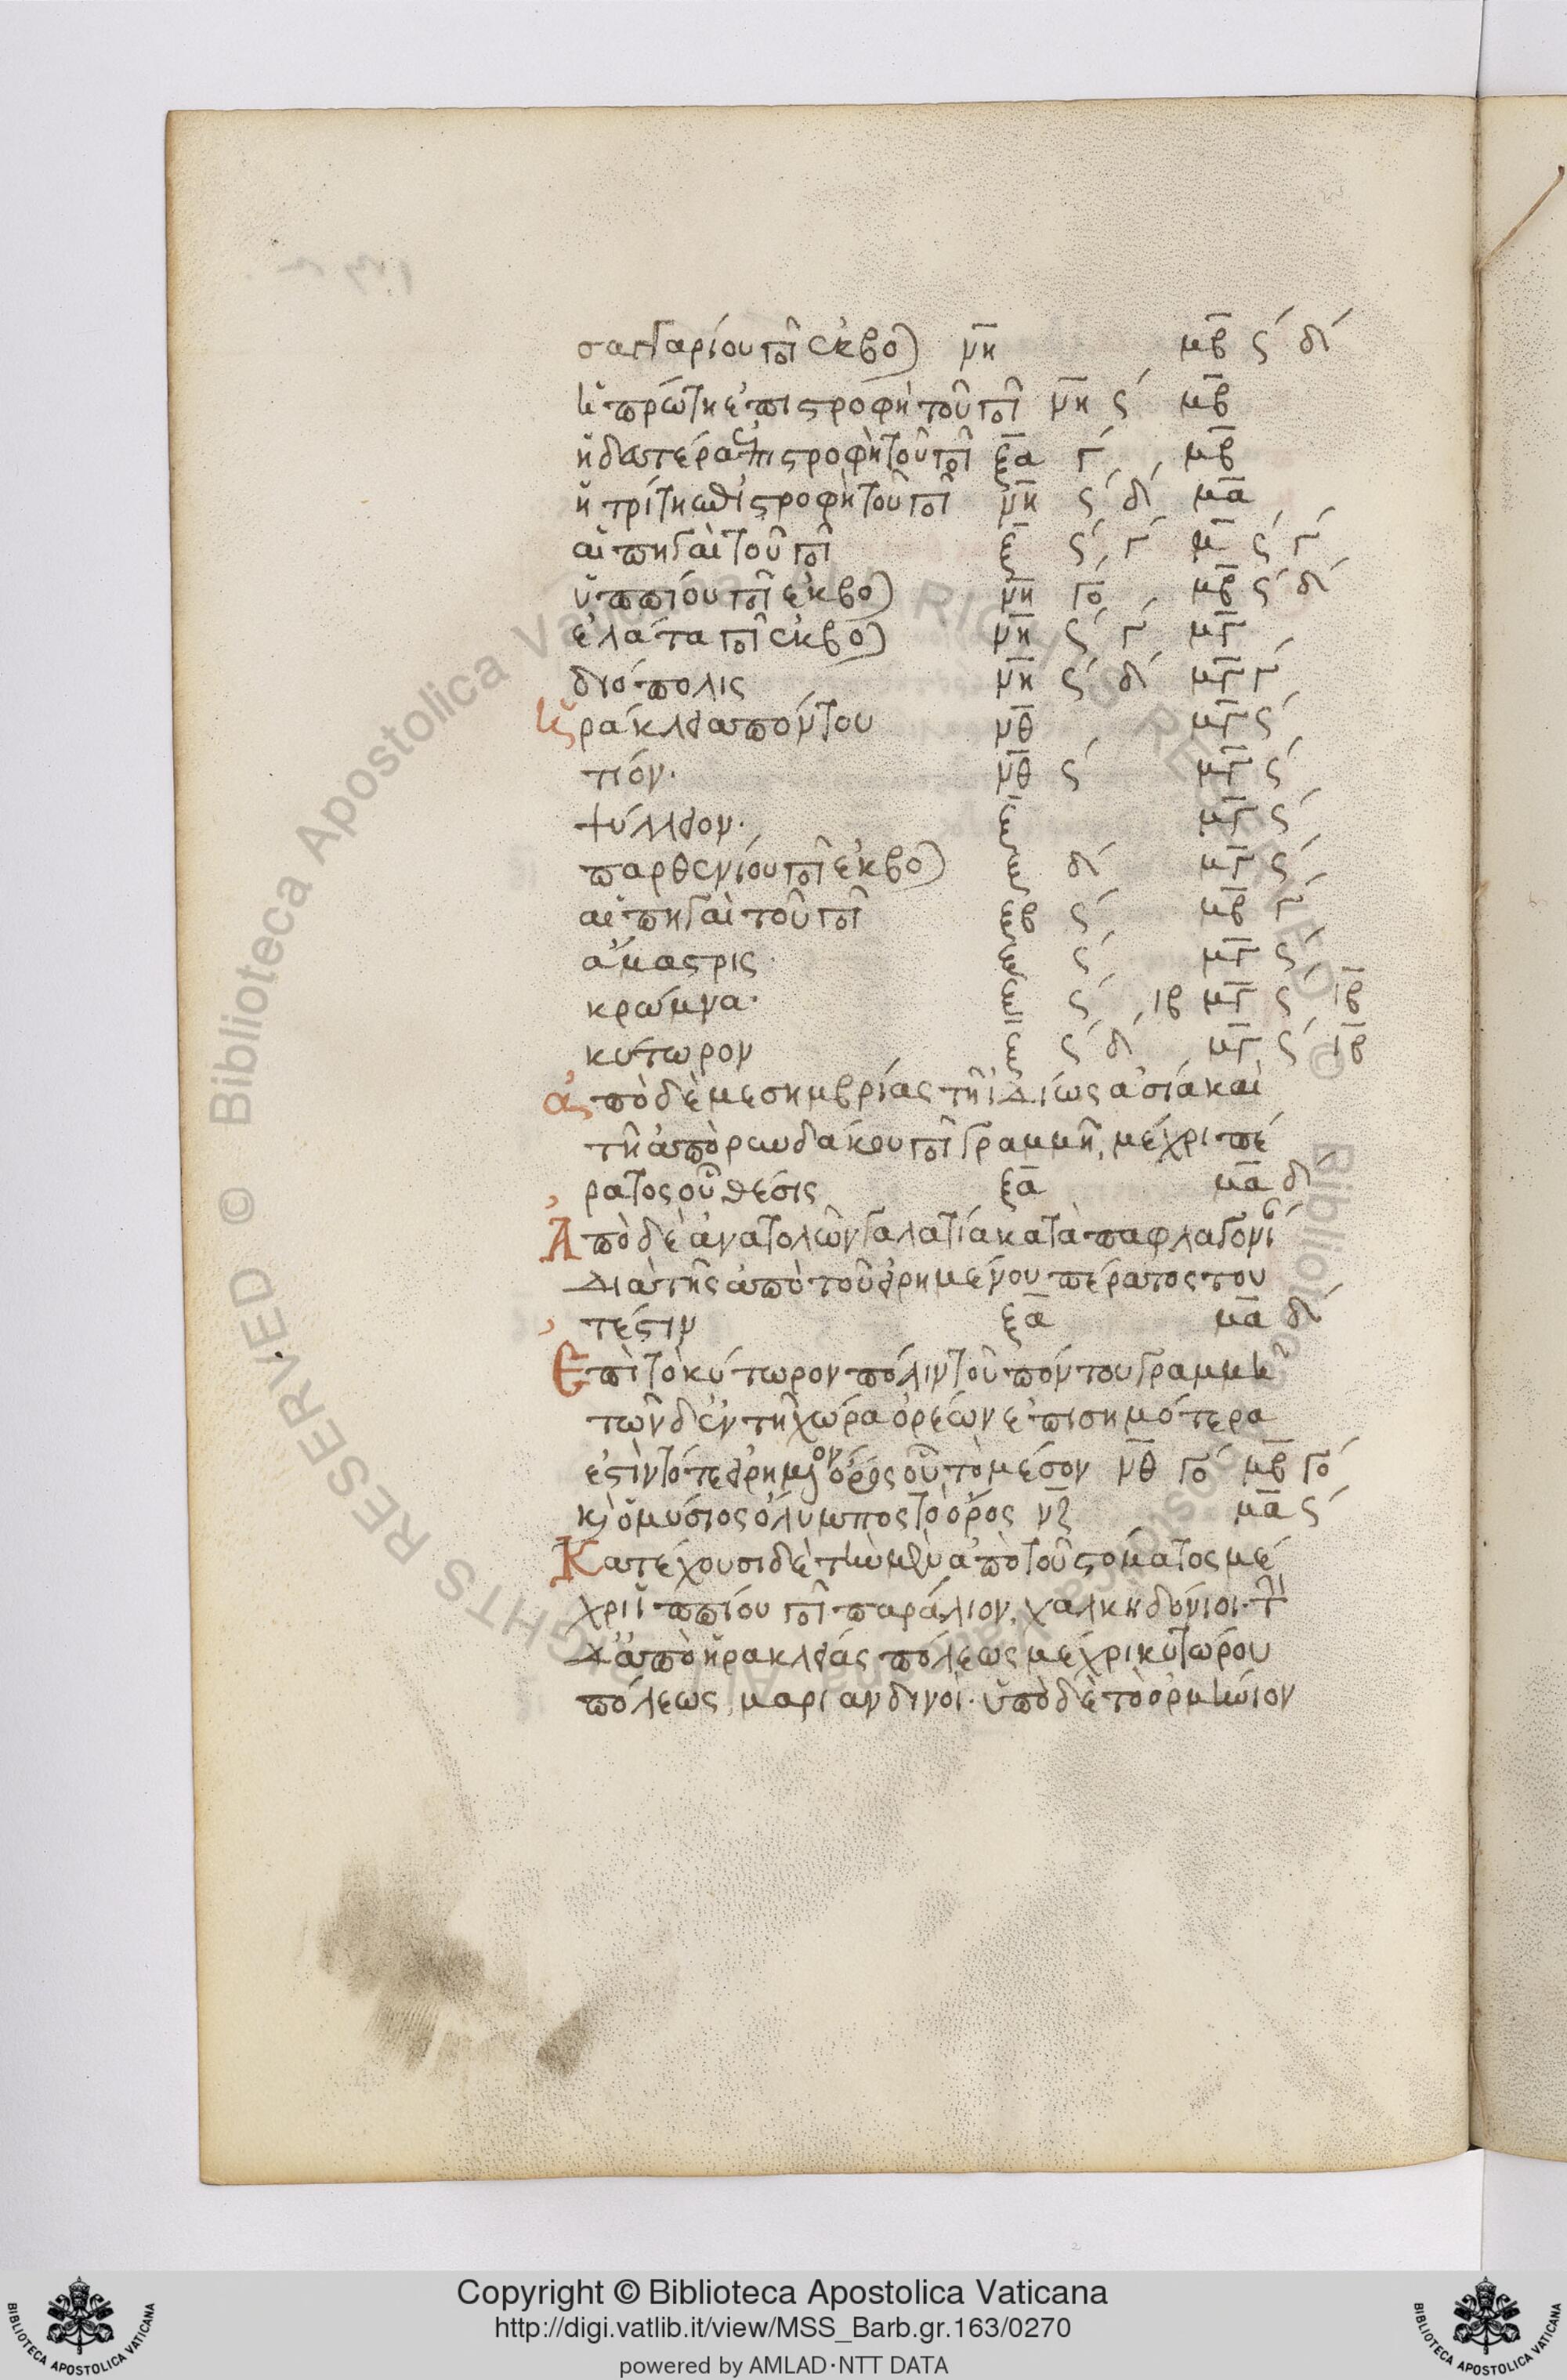 σαγγαρίου ποτ ἐκβο) νη μβ ς΄ δ΄
ἡ πρώτη ἐπιστροφὴ τοῦ ποτ νη ς΄ μβ
ἡ δευτέρα ἐπιστροφὴ τοῦ ποτ ξα γ΄ μβ
ἡ τρίτη ἐπιστροφὴ τοῦ ποτ νη ς΄ δ΄ μα
αἱ πηγαὶ τοῦ ποτ ξ ς΄ γ΄ μ ς΄ γ΄
ὑππίου ποτ ἐκβο) νη γο΄ μβ ς΄ δ΄
ἐλάτα ποτ ἐκβο) νη ς΄ γ΄ μγ
διόπολις νη ς΄ δ΄ μγ γ΄
ἡράκλεια πόντου νθ μγ ς΄
τιόν· νθ ς΄ μγ ς΄
ψύλλειον· ξ μγ ς΄
παρθενίου ποτ ἐκβο) ξ δ΄ μγ ς΄
αἱ πηγαὶ τοῦ ποτ ξβ ς΄ μβ γ΄
ἄμαστρις· ξ ς΄ μγ ς΄
κρώμνα· ξ ς΄ ιβ μγ ς΄ ιβ
κύτωρον ξ ς΄ δ΄ μγ ς΄ ιβ
ἀπὸ δὲ μεσημβρίας τῆ ἰδίως ἀσία καὶ
τῆ ἀπὸ ρυνδάκου ποτ γραμμῆ, μέχρι πέ
ρατος οὗ θέσις ξα μα δ΄
Ἀπὸ δὲ ἀνατολῶν γαλατία κατὰ παφλαγονί
διὰ τῆς ἀπὸ τοῦ εἰρημένου πέρατος του
τέστιν ξα μα δ΄
Ἐπὶ τὸ κύτωρον πόλιν τοῦ πόντου γραμμῆ
τῶν δ' ἐν τῆ χώρα ὀρέων ἐπισημότερα
ἐστὶν τό τε εἰρημένον ὄρος οὗ τὸ μέσον νθ γο΄ μβ γο΄
κὶ ὁ μύσιος ὄλυμπος τὸ ὄρος νζ μα ς΄
Κατέχουσι δὲ τὴν μὲν ἀπὸ τοῦ στόματος μέ
χρι ὑππίου ποτ παράλιον, χαλκηδόνιοι· τὴ
δ' ἀπὸ ἡρακλείας πόλεως μέχρι κυτώρου
πόλεως, μαριανδυνοί· ὑπὸ δὲ τὸ ὁρμήνιον
Copyright © Biblioteca Apostolica Vaticana
http://digi.vatlib.it/view/MSS_Barb.gr.163/0270
powered by AMLAD·NTT DATA